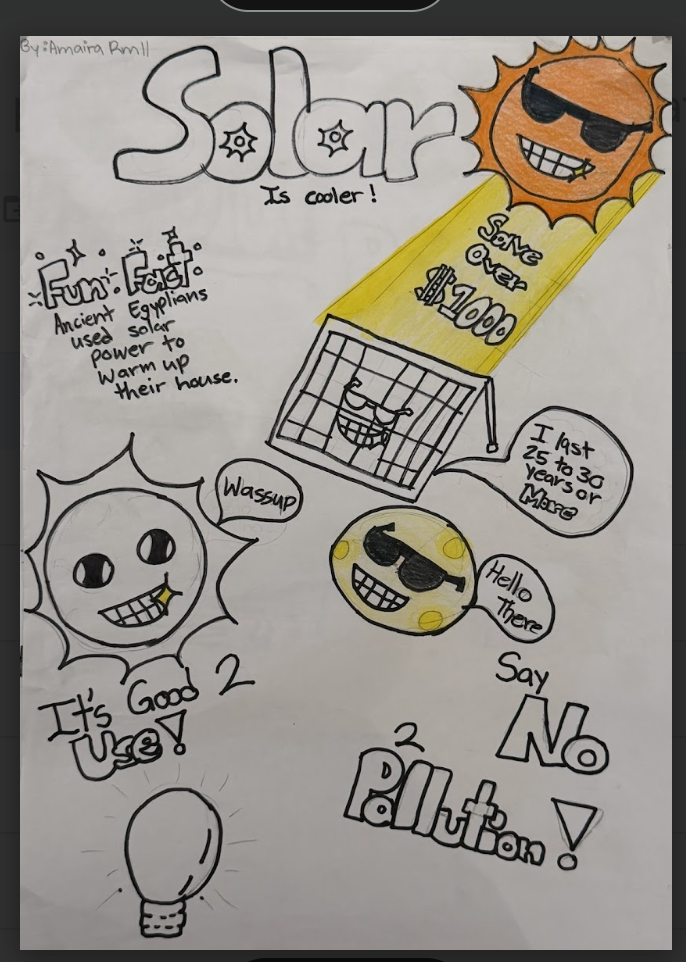 By: Amaira Rm11
Solar
Is cooler!
Save
Over
$1000
Fun Fact
Ancient Egyptians
used solar
power to
warm up
their house.
I last
25 to 30
years or
More
Wassup
Hello
There
It's Good 2
Use!
Say
No
2
Pollution!